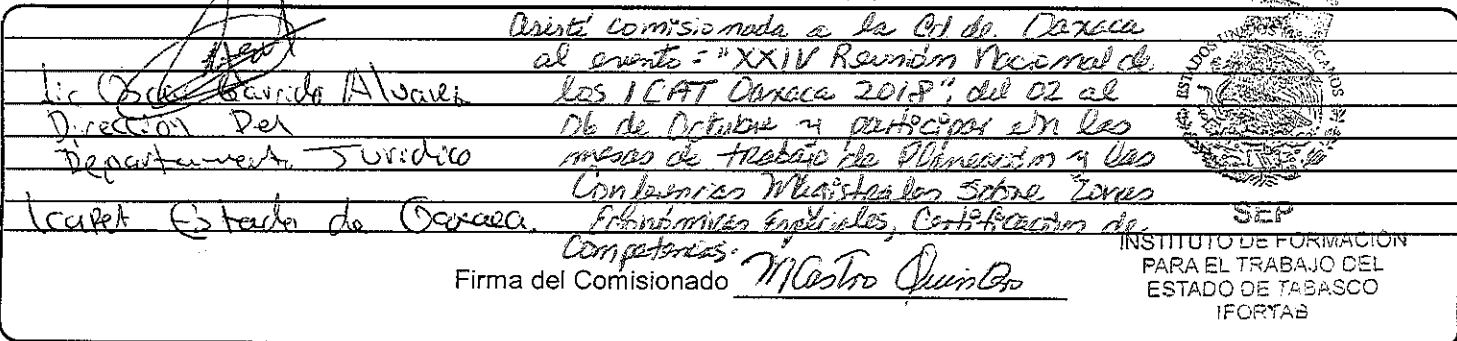 Lic Oscar Garrido Alvarez
Dirección Del
Departamento Jurídico
Icapet Estado de Oaxaca.
Asistí comisionada a la Cd. de Oaxaca
al evento: "XXIV Reunión Nacional de
los ICAT Oaxaca 2018", del 02 al
06 de Octubre y participar en las
mesas de trabajo de Planeación y las
Conferencias Magistrales sobre Zonas
Económicas Especiales, Certificación de
Competencias.
Firma del Comisionado MCastro Quintero
ESTADOS UNIDOS MEXICANOS
SEP
INSTITUTO DE FORMACIÓN
PARA EL TRABAJO DEL
ESTADO DE TABASCO
IFORTAB